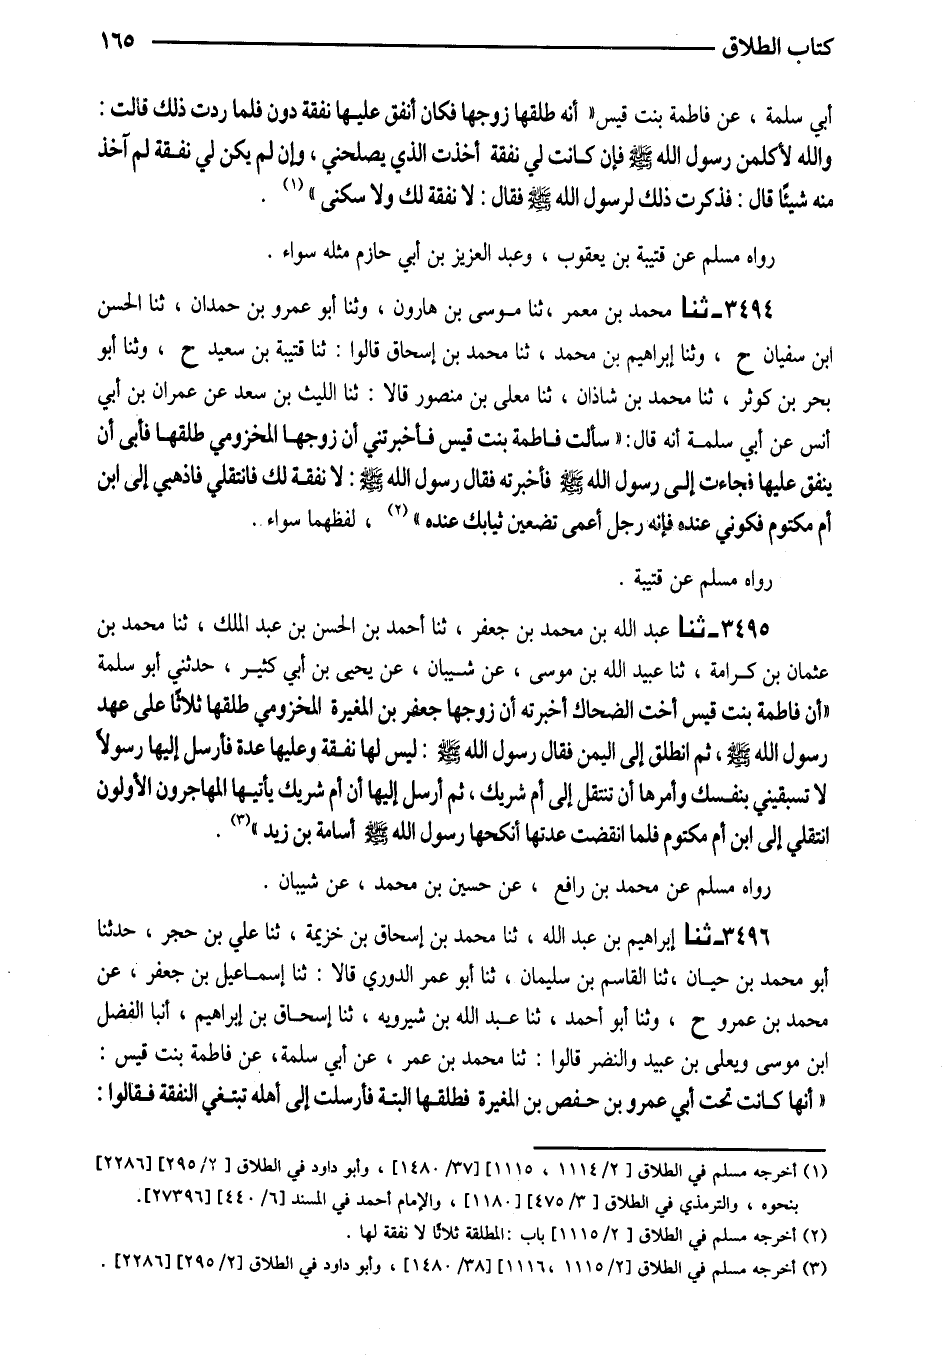 كتاب الطلاق ١٦٥
أبي سلمة ، عن فاطمة بنت قيس« أنه طلقها زوجها فكان أنفق عليها نفقة دون فلما ردت ذلك قالت :
والله لأكلمن رسول الله ﷺ فإن كانت لي نفقة أخذت الذي يصلحني ، وإن لم يكن لي نفقة لم آخذ
منه شيئًا قال : فذكرت ذلك لرسول الله ﷺ فقال : لا نفقة لك ولا سكنى »(١) .
رواه مسلم عن قتيبة بن يعقوب ، وعبد العزيز بن أبي حازم مثله سواء .
٣٤٩٤ـ ثنا محمد بن معمر ،ثنا موسى بن هارون ، وثنا أبو عمرو بن حمدان ، ثنا الحسن
ابن سفيان ح ، وثنا إبراهيم بن محمد ، ثنا محمد بن إسحاق قالوا : ثنا قتيبة بن سعيد ح ، وثنا أبو
بحر بن كوثر ، ثنا محمد بن شاذان ، ثنا معلى بن منصور قالا : ثنا الليث بن سعد عن عمران بن أبي
أنس عن أبي سلمة أنه قال:« سألت فاطمة بنت قيس فأخبرتني أن زوجها المخزومي طلقها فأبى أن
ينفق عليها فجاءت إلى رسول الله ﷺ فأخبرته فقال رسول الله ﷺ : لا نفقة لك فانتقلي فاذهبي إلى ابن
أم مكتوم فكوني عنده فإنه رجل أعمى تضعين ثيابك عنده »(٢) ، لفظهما سواء .
رواه مسلم عن قتيبة .
٣٤٩٥ـ ثنا عبد الله بن محمد بن جعفر ، ثنا أحمد بن الحسن بن عبد الملك ، ثنا محمد بن
عثمان بن كرامة ، ثنا عبيد الله بن موسى ، عن شيبان ، عن يحيى بن أبي كثير ، حدثني أبو سلمة
«أن فاطمة بنت قيس أخت الضحاك أخبرته أن زوجها جعفر بن المغيرة المخزومي طلقها ثلاثًا على عهد
رسول الله ﷺ ، ثم انطلق إلى اليمن فقال رسول الله ﷺ : ليس لها نفقة وعليها عدة فأرسل إليها رسولاً
لا تسبقيني بنفسك وأمرها أن تنتقل إلى أم شريك ، ثم أرسل إليها أن أم شريك يأتيها المهاجرون الأولون
انتقلي إلى ابن أم مكتوم فلما انقضت عدتها أنكحها رسول الله ﷺ أسامة بن زيد »(٣) .
رواه مسلم عن محمد بن رافع ، عن حسين بن محمد ، عن شيبان .
٣٤٩٦ـ ثنا إبراهيم بن عبد الله ، ثنا محمد بن إسحاق بن خزيمة ، ثنا علي بن حجر ، حدثنا
أبو محمد بن حيان ،ثنا القاسم بن سليمان ، ثنا أبو عمر الدوري قالا : ثنا إسماعيل بن جعفر ، عن
محمد بن عمرو ح ، وثنا أبو أحمد ، ثنا عبد الله بن شيرويه ، ثنا إسحاق بن إبراهيم ، أنبا الفضل
ابن موسى ويعلى بن عبيد والنضر قالوا : ثنا محمد بن عمر ، عن أبي سلمة، عن فاطمة بنت قيس :
« أنها كانت تحت أبي عمرو بن حفص بن المغيرة فطلقها البتة فأرسلت إلى أهله تبتغي النفقة فقالوا :
(١) أخرجه مسلم في الطلاق [ ٢/ ١١١٤ ، ١١١٥] [٣٧/ ١٤٨٠] ، وأبو داود في الطلاق [ ٢/ ٢٩٥] [٢٢٨٦]
بنحوه ، والترمذي في الطلاق [ ٣/ ٤٧٥] [١١٨٠] ، والإمام أحمد في المسند [٦/ ٤٤٠] [٢٧٣٩٦].
(٢) أخرجه مسلم في الطلاق [ ٢/ ١١١٥] باب :المطلقة ثلاثًا لا نفقة لها .
(٣) أخرجه مسلم في الطلاق [٢/ ١١١٥ ،١١١٦] [٣٨/ ١٤٨٠] ، وأبو داود في الطلاق [٢/ ٢٩٥] [٢٢٨٦] .